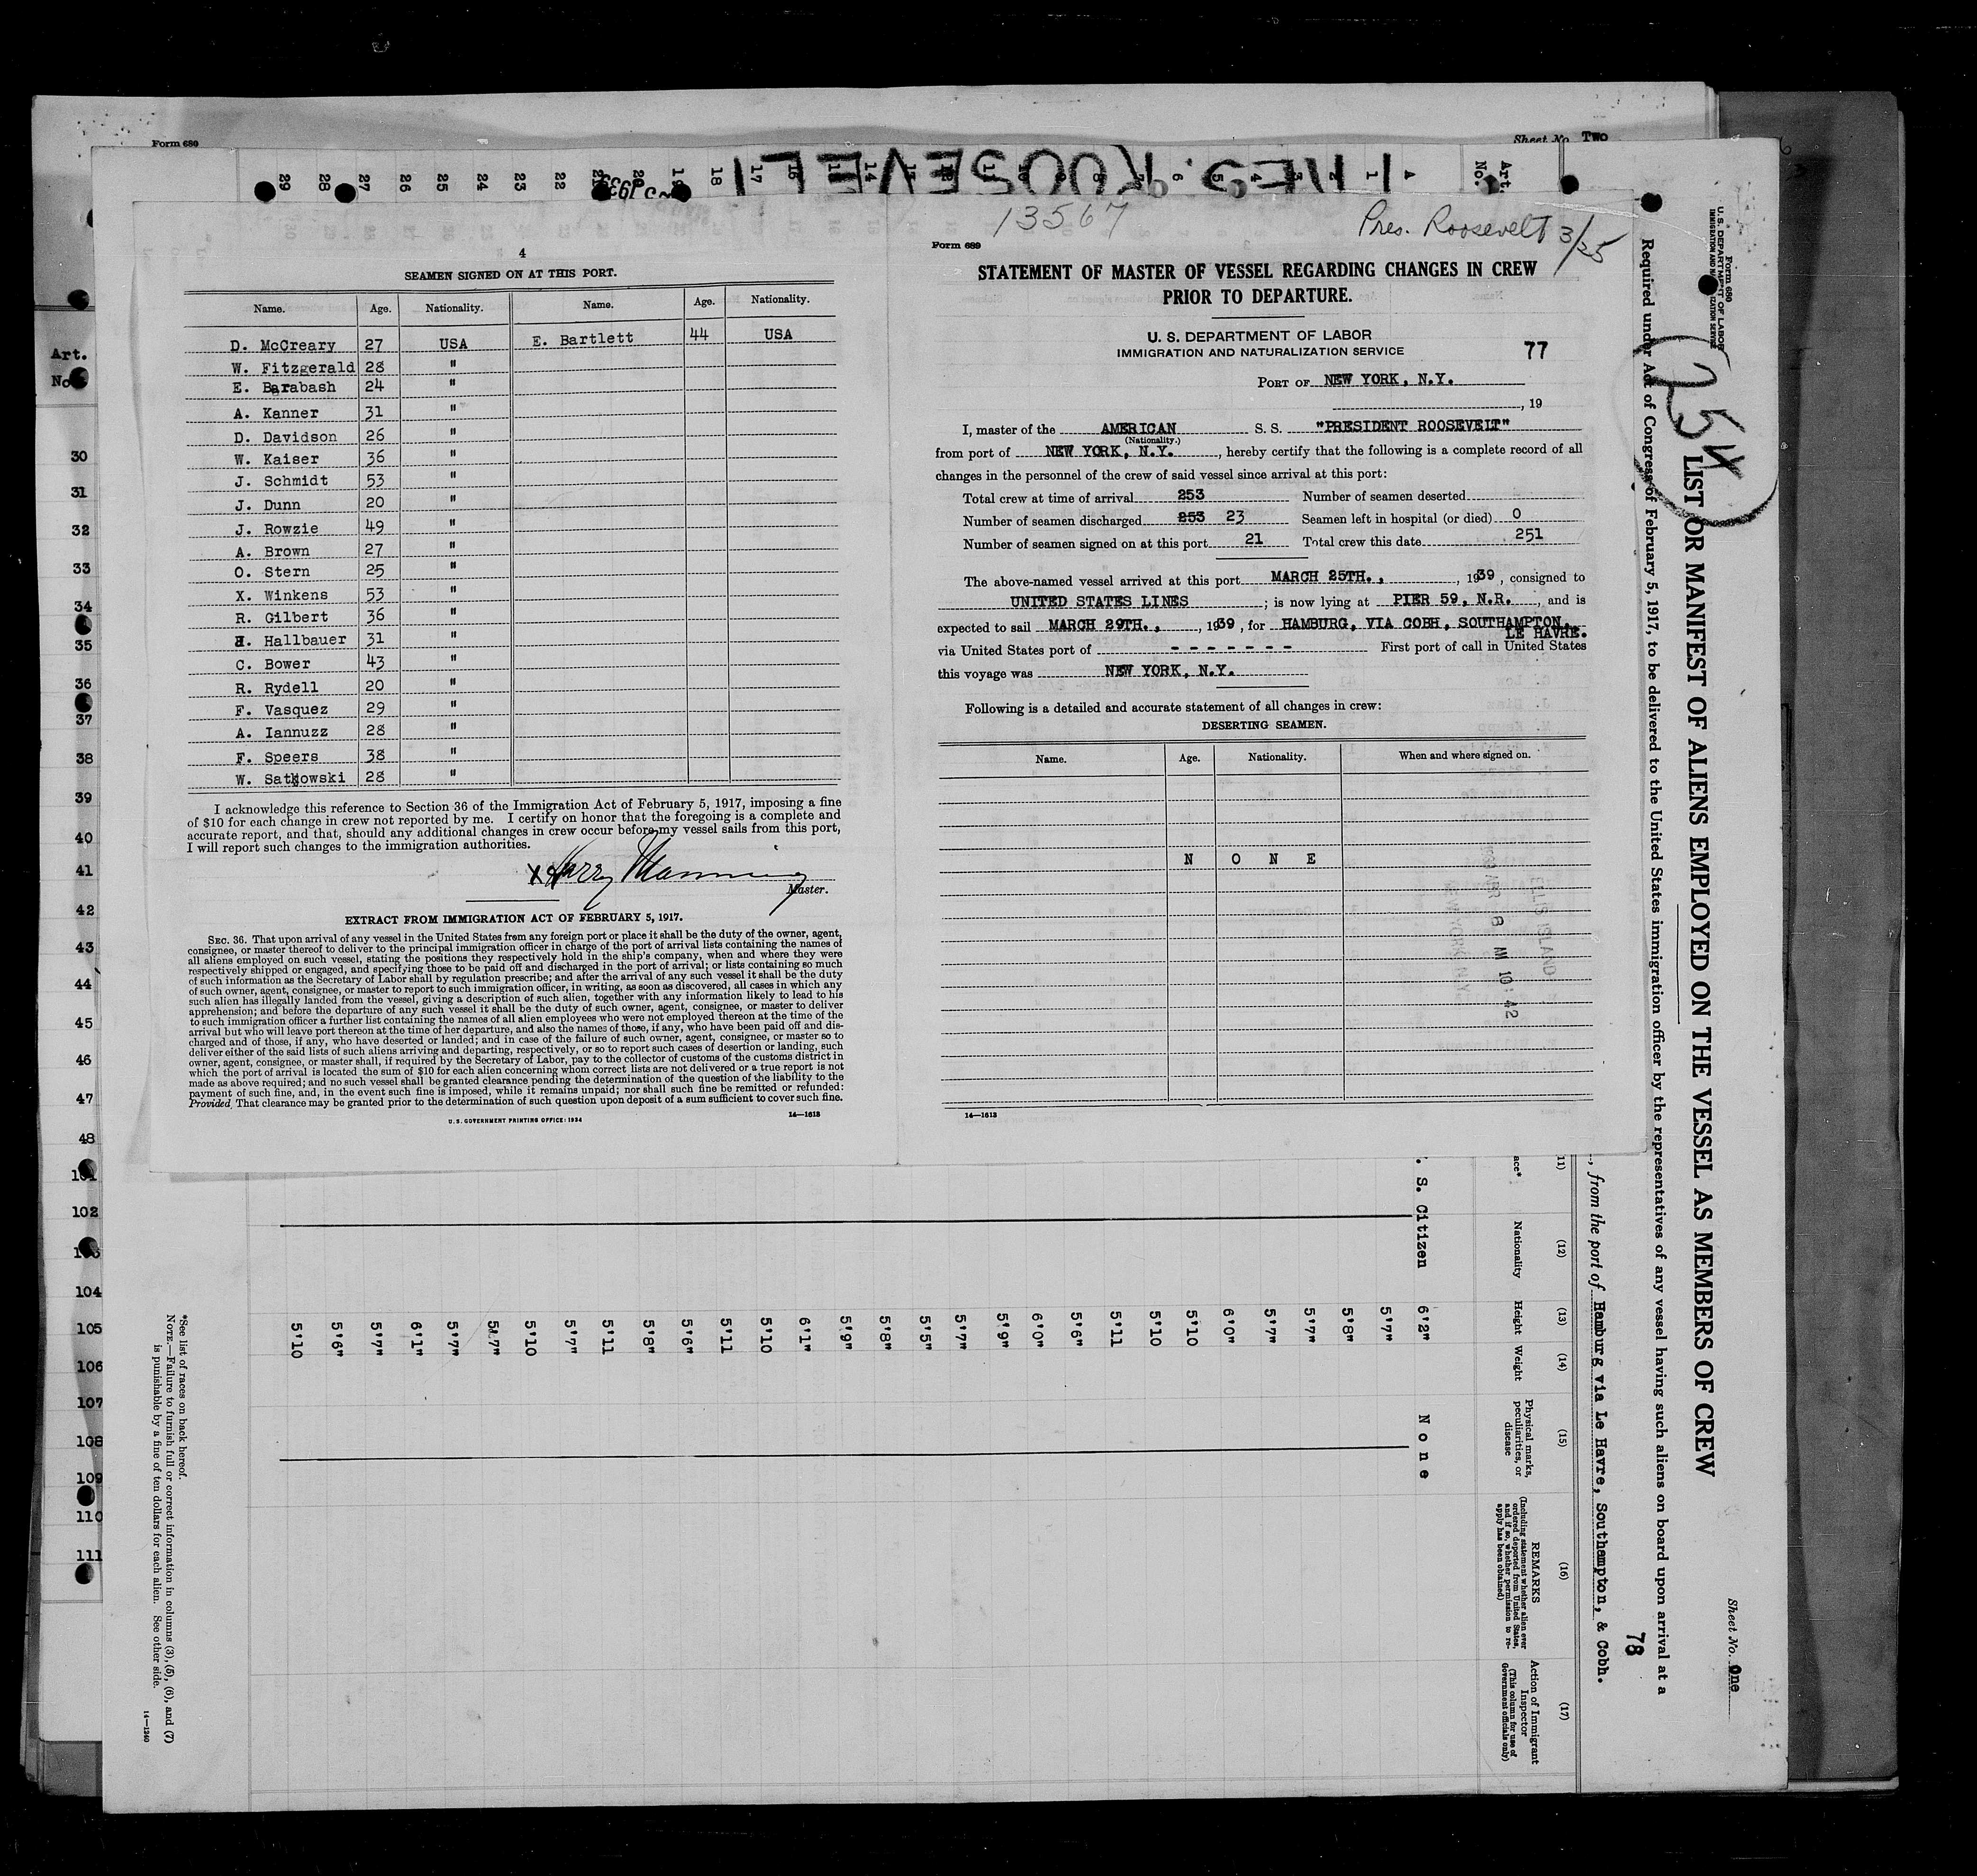 Form 680
Sheet No. Two
Art.
No.
30
31
32
33
34
35
36
37
38
39
40
41
42
43
44
45
46
47
48
101
102
103
104
105
106
107
108
109
110
111
29 28 27 26 25 24 23 22 21 20 19 18 17 16 15 14 13 12 11 10 9 8 7 6 5 4 3 2 1 A
Art.
No.
PRES. ROOSEVELT
4
SEAMEN SIGNED ON AT THIS PORT.
Name. Age. Nationality. Name. Age. Nationality.
D. McCreary 27 USA E. Bartlett 44 USA
W. Fitzgerald 28 "
E. Barabash 24 "
A. Kanner 31 "
D. Davidson 26 "
W. Kaiser 36 "
J. Schmidt 53 "
J. Dunn 20 "
J. Rowzie 49 "
A. Brown 27 "
O. Stern 25 "
X. Winkens 53 "
R. Gilbert 36 "
H. Hallbauer 31 "
C. Bower 43 "
R. Rydell 20 "
F. Vasquez 29 "
A. Iannuzz 28 "
F. Speers 38 "
W. Satkowski 28 "
I acknowledge this reference to Section 36 of the Immigration Act of February 5, 1917, imposing a fine
of $10 for each change in crew not reported by me. I certify on honor that the foregoing is a complete and
accurate report, and that, should any additional changes in crew occur before my vessel sails from this port,
I will report such changes to the immigration authorities.
X Harry Manning
Master.
EXTRACT FROM IMMIGRATION ACT OF FEBRUARY 5, 1917.
SEC. 36. That upon arrival of any vessel in the United States from any foreign port or place it shall be the duty of the owner, agent,
consignee, or master thereof to deliver to the principal immigration officer in charge of the port of arrival lists containing the names of
all aliens employed on such vessel, stating the positions they respectively hold in the ship's company, when and where they were
respectively shipped or engaged, and specifying those to be paid off and discharged in the port of arrival; or lists containing so much
of such information as the Secretary of Labor shall by regulation prescribe; and after the arrival of any such vessel it shall be the duty
of such owner, agent, consignee, or master to report to such immigration officer, in writing, as soon as discovered, all cases in which any
such alien has illegally landed from the vessel, giving a description of such alien, together with any information likely to lead to his
apprehension; and before the departure of any such vessel it shall be the duty of such owner, agent, consignee, or master to deliver
to such immigration officer a further list containing the names of all alien employees who were not employed thereon at the time of the
arrival but who will leave port thereon at the time of her departure, and also the names of those, if any, who have been paid off and dis-
charged and of those, if any, who have deserted or landed; and in case of the failure of such owner, agent, consignee, or master so to
deliver either of the said lists of such aliens arriving and departing, respectively, or so to report such cases of desertion or landing, such
owner, agent, consignee, or master shall, if required by the Secretary of Labor, pay to the collector of customs of the customs district in
which the port of arrival is located the sum of $10 for each alien concerning whom correct lists are not delivered or a true report is not
made as above required; and no such vessel shall be granted clearance pending the determination of the question of the liability to the
payment of such fine, and, in the event such fine is imposed, while it remains unpaid; nor shall such fine be remitted or refunded:
Provided, That clearance may be granted prior to the determination of such question upon deposit of a sum sufficient to cover such fine.
U. S. GOVERNMENT PRINTING OFFICE: 1934
14—1613
13567
Pres. Roosevelt 3/25
Form 689
STATEMENT OF MASTER OF VESSEL REGARDING CHANGES IN CREW
PRIOR TO DEPARTURE.
U. S. DEPARTMENT OF LABOR
IMMIGRATION AND NATURALIZATION SERVICE
77
PORT OF NEW YORK, N.Y.
, 19
I, master of the AMERICAN S. S. "PRESIDENT ROOSEVELT"
(Nationality.)
from port of NEW YORK, N.Y. , hereby certify that the following is a complete record of all
changes in the personnel of the crew of said vessel since arrival at this port:
Total crew at time of arrival 253 Number of seamen deserted
Number of seamen discharged 253 23 Seamen left in hospital (or died) 0
Number of seamen signed on at this port 21 Total crew this date 251
The above-named vessel arrived at this port MARCH 25TH., , 1939, consigned to
UNITED STATES LINES ; is now lying at PIER 59, N.R. , and is
expected to sail MARCH 29TH., , 1939, for HAMBURG, VIA COBH, SOUTHAMPTON,
LE HAVRE.
via United States port of - - - - - - - First port of call in United States
this voyage was NEW YORK, N.Y.
Following is a detailed and accurate statement of all changes in crew:
DESERTING SEAMEN.
Name. Age. Nationality. When and where signed on.
N O N E
ELLIS ISLAND
AM 10:42
14—1613
Form 680
U. S. DEPARTMENT OF LABOR
IMMIGRATION AND NATURALIZATION SERVICE
254
Sheet No. One
LIST OR MANIFEST OF ALIENS EMPLOYED ON THE VESSEL AS MEMBERS OF CREW
Required under Act of Congress of February 5, 1917, to be delivered to the United States immigration officer by the representatives of any vessel having such aliens on board upon arrival at a
78
, from the port of Hamburg via Le Havre, Southampton, & Cobh.
(11) (12) (13) (14) (15) (16) (17)
Nationality
Height
Weight
Physical marks,
peculiarities, or
disease
REMARKS
(Including statement whether alien ever
ordered deported from United States,
and if so, whether permission to re-
apply has been obtained)
Action of Immigrant
Inspector
(This column for use of
Government officials only)
. S. Citizen 6'2" N o n e
5'7"
5'8"
5'7"
5'7"
6'0"
5'10
5'10
5'11
5'6"
6'0"
5'9"
5'7"
5'5"
5'8"
5'9"
6'1"
5'10
5'11
5'6"
5'8"
5'11
5'7"
5'10
5'7"
5'7"
6'1"
5'7"
5'6"
5'10
*See list of races on back hereof.
NOTE.—Failure to furnish full or correct information in columns (3), (5), (6), and (7)
is punishable by a fine of ten dollars for each alien. See other side.
14—1240